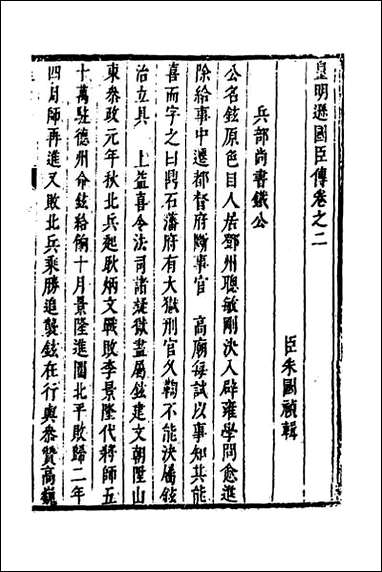 皇明遜國臣傳卷之二
臣朱國禎輯
兵部尚書鐵公
公名鉉原色目人居鄧州聰敏剛決入辟雍學問愈進
除給事中遷都督府斷事官　高廟每試以事知其能
喜而字之曰鼎石藩府有大獄刑官久鞫不能決屬鉉
治立具　上益喜令法司諸疑獄盡屬鉉建文朝陞山
東參政元年秋北兵起耿炳文戰敗李景隆代將師五
十萬駐德州命鉉給餉十月景隆進圍北平敗歸二年
四月師再進又敗北兵乘勝追襲鉉在行與參贊高巍